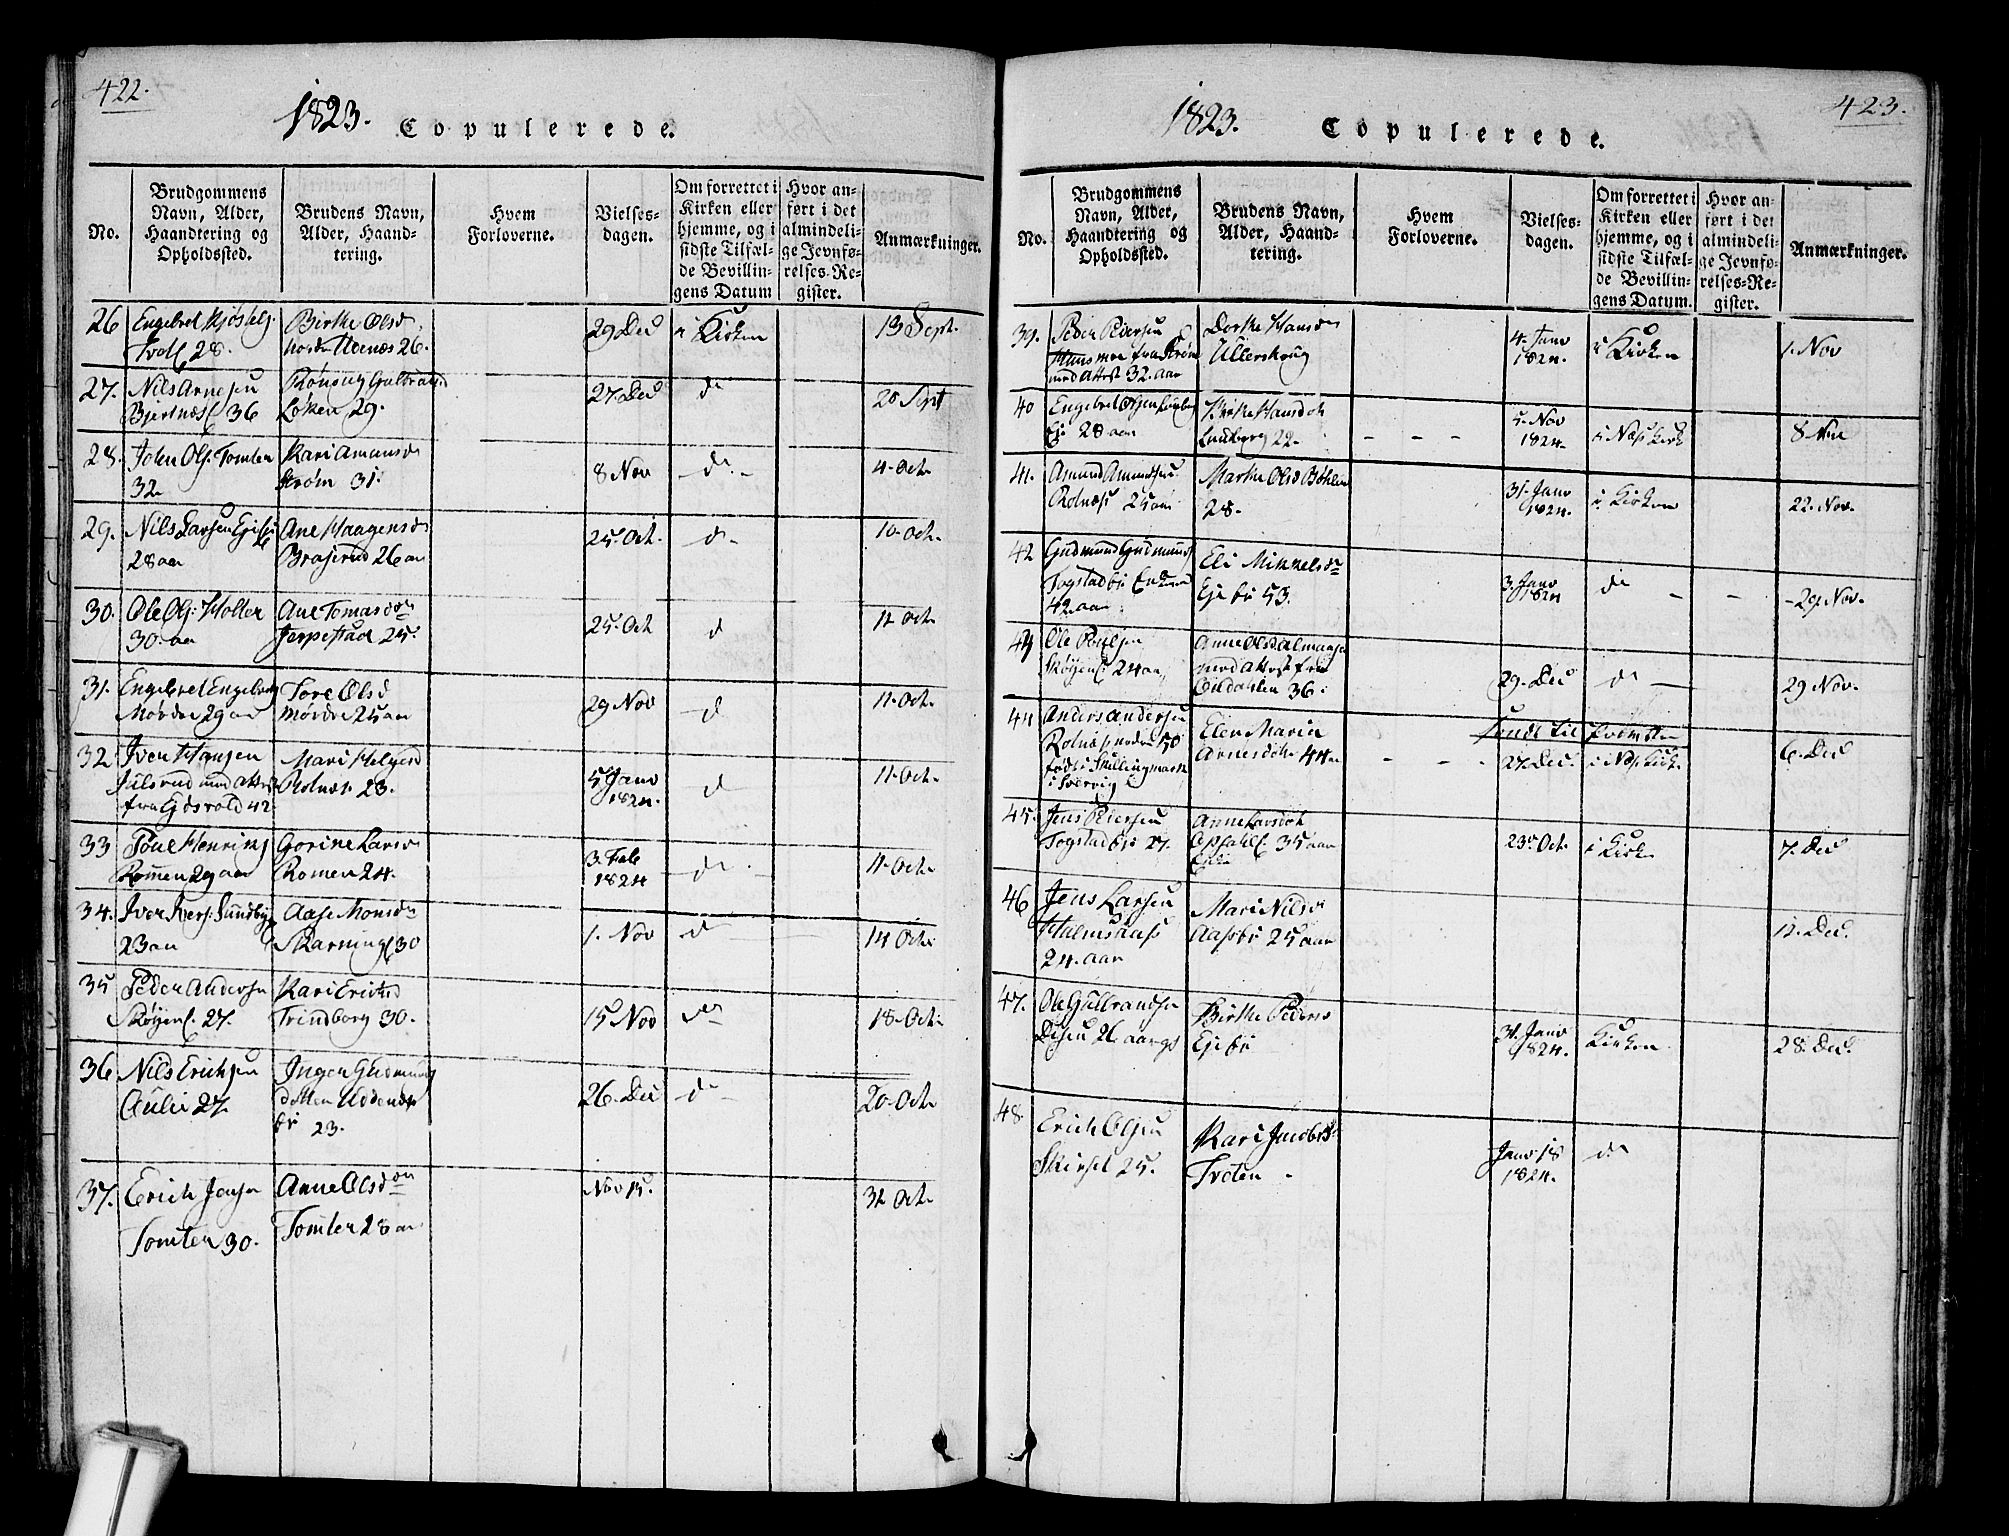 422.
1823. Copulerede.
No.
Brudgommens
Navn, Alder,
Haandtering og
Opholdssted.
Brudens Navn,
Alder, Haand-
tering.
Hvem
Forloverne.
Vielses-
dagen.
Om forrettet i
Kirken eller
hjemme, og i
sidste Tilfæl-
de Bevillin-
gens Datum
Hvor an-
ført i det
almindeli-
ge Jevnfø-
relses-Re-
gister.
Anmærkninger.
26 Engebret 28. Birthe Olsd Udenæs 26. 29 Dec i Kirken 13 Sept.
27. Nils Arnesen
Bjertnæs 36 Løken 29. 27 Dec do 20 Sept
28. John Ols. Tomter
32 Kari Amunsd
Strøm 31. 8 Nov do 4. Oct.
29. Nils Larsen
28 aar Ane Haagensd
Braserud 26 aar 25. Oct. do 10. Oct.
30. Ole Ols. Holter
30. aar Ane Tomasd
Jarpestad 25. 25. Oct do 12 Oct.
31. Engebret Engebrs
Mørdre 29 aar Tore Olsd
Mørdre 25 aar 29 Nov do 11. Oct.
32 Iver Hansen
Julsrud med attest
fra 42. Mari Helgesd
Rolnæs. 23. 5 Janv
1824. do 11. Oct.
33 Poul Henrings
Romen 29 aar Gorine Larsd
Romen 24. 3. Feb
1824 do 11. Oct.
34. Iver Ivers. Sundby
23 aar Aase Monsd
Skarning 30 1. Nov do 14 Oct.
35 Peder Andersen
Skøyen 27. Kari Ericksd
Trindborg 30. 15 Nov do 18. Oct.
36 Nils Erichsen
Aulie 27. Inger Gudmuns
datter
23. 26. Dec do 20. Oct.
37. Erich Jensen
Tomter 30. Anne Olsd
Tomter 28 aar Nov 15. 31 Oct.
423.
1823. Copulerede.
No.
Brudgommens
Navn, Alder,
Haandtering og
Opholdssted.
Brudens Navn,
Alder, Haand-
tering.
Hvem
Forloverne.
Vielses-
dagen.
Om forrettet i
Kirken eller
hjemme, og i
sidste Tilfæl-
de Bevillin-
gens Datum.
Hvor an-
ført i det
almindeli-
ge Jevnfø-
relses-Re-
gister.
Anmærkninger.
39. Peder Pedersen
fra Strøm
med attest 32. aar Dorthe Hansd
Ullerskrug 4. Janv
1824. i Kirken 1. Nov
40 Engebret Olsen
28 aar Birthe Hansdatr
Lundberg 22. 5. Nov
1824. i Næs kirk 8 Nov
41. Amund Amundsen
Rolnæs 25 aar Marthe Olsd Bøhler
28. 31. Janv
1824. i Kirken 22. Nov.
42 Gudmund Gudmunds
Enkemand
42 aar Eli Mikkelsd
53. 3 Janv
1824 do 29. Nov.
43 Ole Poulsen
Skøyen 24 aar Anne Olsd
med attest fra
36. 29. Dec do 29 Nov.
44 Anders Andersen
Rolnæs 50
født i Skillingmark
i Sverrig Elen Maria
Arnesdatr 44. 27. Dec. i Næs Kirk. 6. Dec
45. Jens Pedersen
27. Anne Larsdatr
35 aar 23. Oct. i Kirk 7. Dec
46 Jens Larsen
Halmsaas
24. aar Mari Nilsd
25 aar 12. Dec.
47. Ole Gulbrandsen
Disen 26 aar Birthe Pedersd 31. Janv
1824. Kirken 28. Dec.
48 Erich Olsen
25. Kari Jacobsd
Tveten Janv 18
1824. do